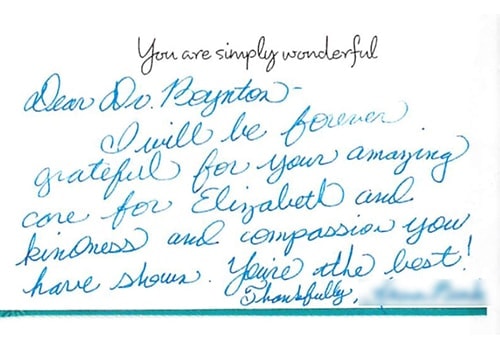 You are simply wonderful
Dear Dr. Boynton -
I will be forever
grateful for your amazing
care for Elizabeth and
kindness and compassion you
have shown. You're the best!
Thankfully,